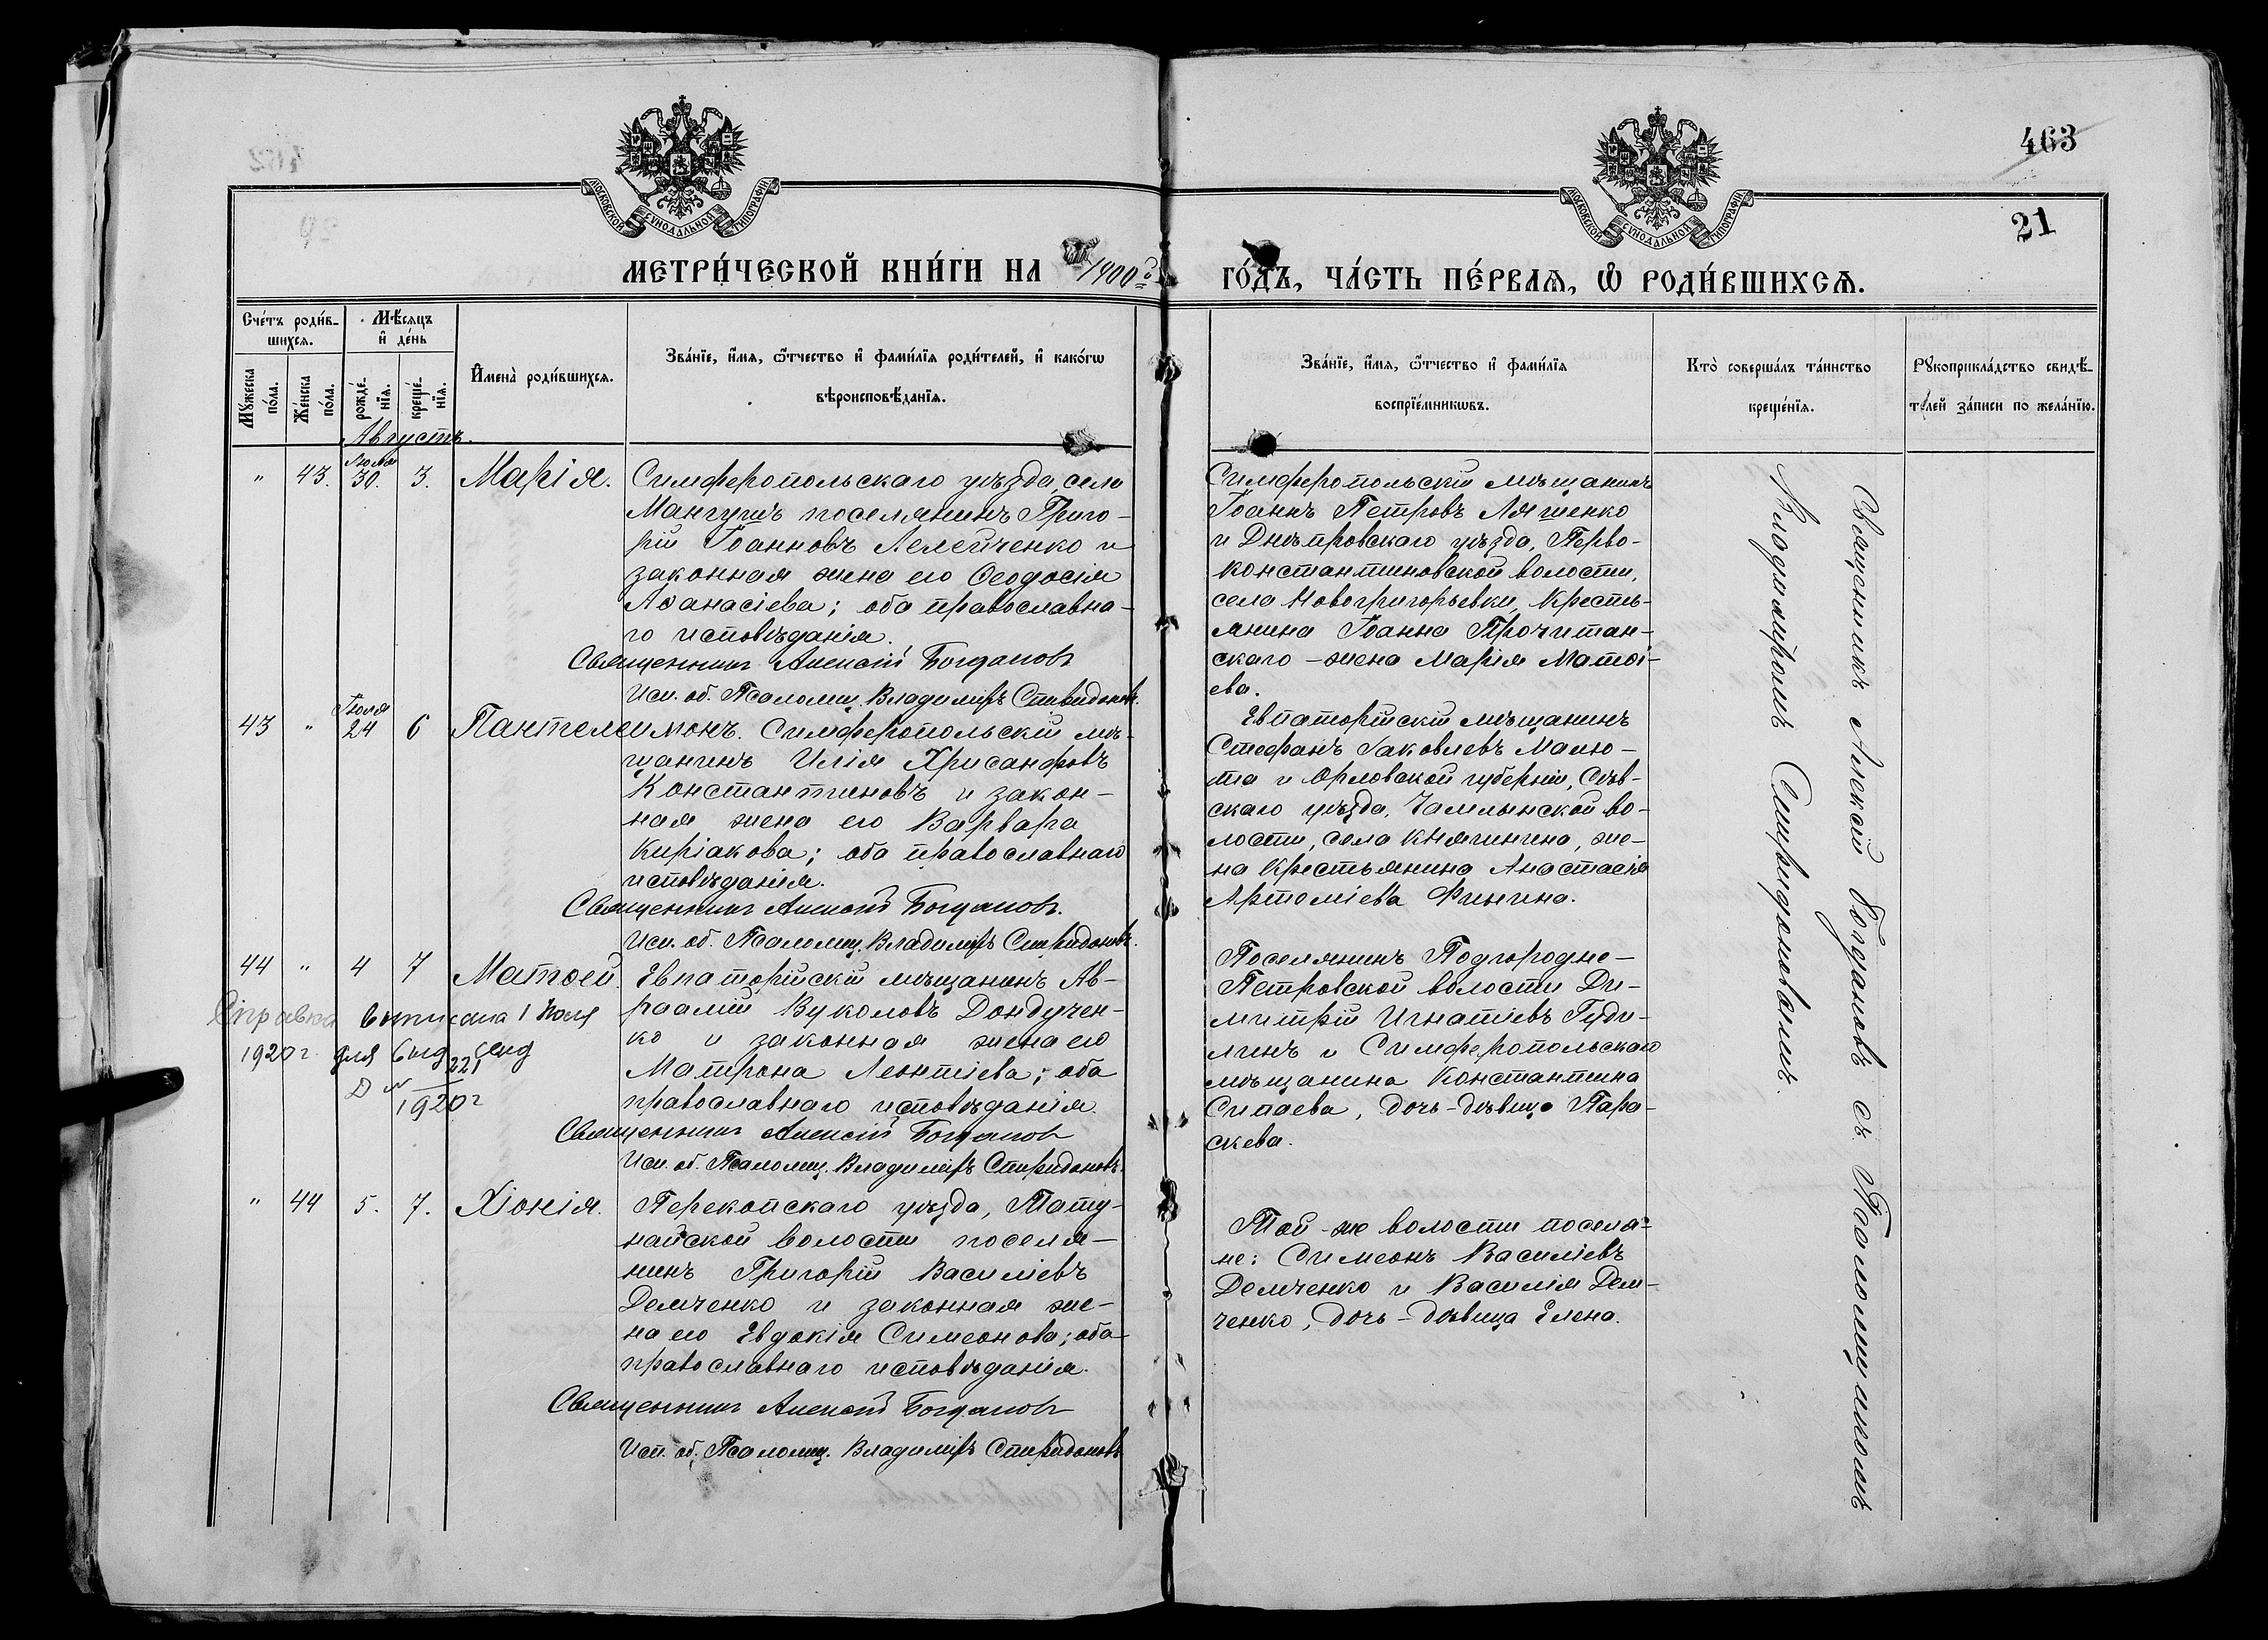 463
21
МОСКОВСКОЙ СѴНОДАЛЬНОЙ ТИПОГРАФІИ
МОСКОВСКОЙ СѴНОДАЛЬНОЙ ТИПОГРАФІИ
МЕТРИ́ЧЕСКОЙ КНИ́ГИ НА 1900й
ГО́ДЪ, ЧА́СТЬ ПЕ́РВАЯ, Ѿ РОДИ́ВШИХСЯ.
Сче́тъ роди́в-
шихся.
Му́жеска по́ла.
Же́нска по́ла.
Мѣ́сяцъ
и҆ де́нь
рожде́-
нїѧ.
креще́-
нїѧ.
И҆мена̀ роди́вшихся.
Зва́нїе, и҆́мя, ѻ҆́тчество и҆ фами́лїя роди́телей, и҆ како́гѡ
вѣроисповѣ́данїя.
Зва́нїе, и҆́мя, ѻ҆́тчество и҆ фами́лїя
воспрїе́мникѡвъ.
Кто̀ соверша́лъ та́инство
креще́нїя.
Рꙋкоприкла́дство свидѣ́-
телей за́писи по жела́нїю.
Августъ.
" 43. Іюля 30. 3. Марія.
Симферопольскаго уѣзда, села
Мангушъ поселянинъ Григо-
рій Іоанновъ Лелейченко и
законная жена его Ѳеодосія
Аѳанасіева; оба православна-
го исповѣданія.
Священникъ Алексій Богдановъ
Исп. об. Псаломщ. Владиміръ Спиридоновъ.
Симферопольскій мѣщанинъ
Іоаннъ Петровъ Ляшенко
и Днѣпровскаго уѣзда, Перво-
константиновской волости,
села Новогригорьевки, кресть-
янина Іоанна Прочитан-
скаго – жена Марія Матѳі-
ева.
43 " Іюля 24 6 Пантелеимонъ.
Симферопольскій мѣ-
щанинъ Илія Хрисанфовъ
Константиновъ и закон-
ная жена его Варвара
Киріакова; оба православнаго
исповѣданія.
Священникъ Алексій Богдановъ.
Исп. об. Псаломщ. Владиміръ Спиридоновъ.
Евпаторійскій мѣщанинъ
Стефанъ Іаковлевъ Малю-
та и Орловской губерніи, Сѣв-
скаго уѣзда, Чамлынской во-
лости, села Княгинина, же-
на крестьянина Анастасія
Артеміева Финина.
44 " 4 7 Матѳей.
Евпаторійскій мѣщанинъ Ав-
раамій Вуколовъ Дондучен-
ко и законная жена его
Матрона Леонтіева; оба
православнаго исповѣданія.
Священникъ Алексій Богдановъ
Исп. об. Псаломщ. Владиміръ Спиридоновъ.
Справка выписана 1 Іюля
1920 г. для
221
1920 г
Поселянинъ Подгородне-
Петровской волости Ди-
митрій Игнатіевъ Гуди-
линъ и Симферопольскаго
мѣщанина Константина
Сипаева, дочь-дѣвица Пара-
скева.
" 44 5. 7. Хіонія.
Перекопскаго уѣзда, Тату-
найской волости поселя-
нинъ Григорій Василіевъ
Демченко и законная же-
на его Евдокія Симеонова; оба
православнаго исповѣданія.
Священникъ Алексій Богдановъ
Исп. об. Псаломщ. Владиміръ Спиридоновъ
Той-же волости поселя-
не: Симеонъ Василіевъ
Демченко и Василія Дем-
ченко, дочь-дѣвица Елена.
Священникъ Алексій Богдановъ съ Псаломщикомъ
Владиміромъ Спиридоновымъ.